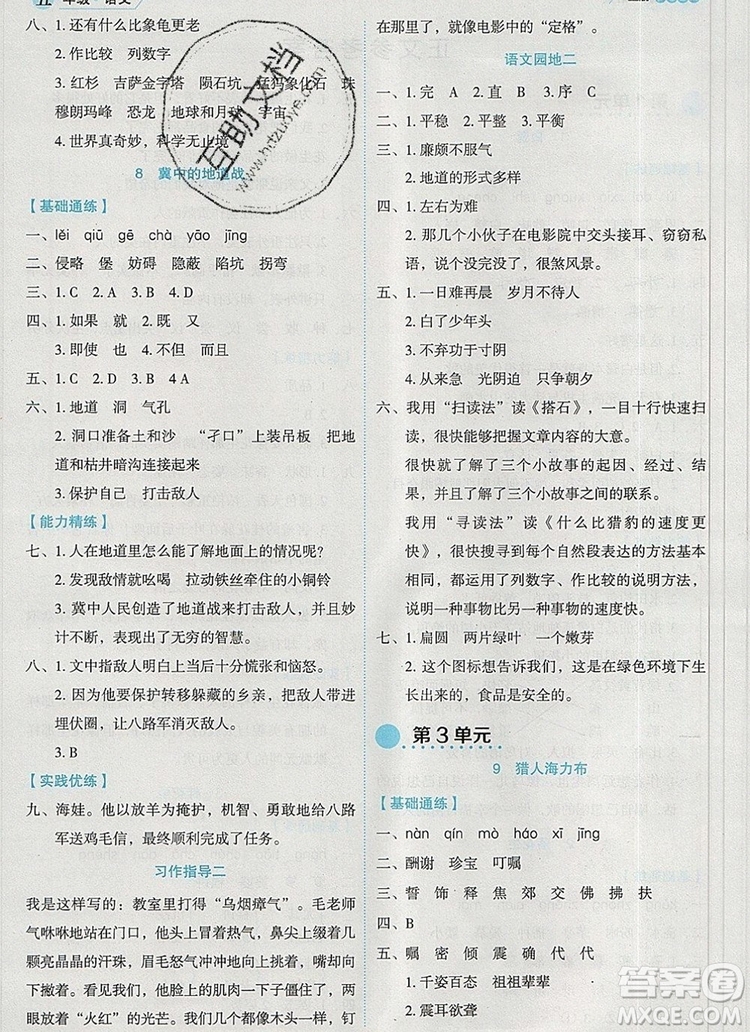 五年级·语文
八、1. 还有什么比象龟更老
2. 作比较 列数字
3. 红杉 吉萨金字塔 陨石坑 猛犸象化石 珠
穆朗玛峰 恐龙 地球和月球 宇宙
4. 世界真奇妙，科学无止境
8 冀中的地道战
【基础通练】
一、lěi qiū gē chà yāo jīng
二、侵略 堡 妨碍 隐蔽 陷坑 拐弯
三、1. C 2. A 3. B 4. D
四、1. 如果 就 2. 既 又
3. 即使 也 4. 不但 而且
五、1. C 2. A 3. D 4. B
六、1. 地道 洞 气孔
2. 洞口准备土和沙 “孑口”上装吊板 把地
道和枯井暗沟连接起来
3. 保护自己 打击敌人
【能力精练】
七、1. 人在地道里怎么能了解地面上的情况呢？
2. 发现敌情就吆喝 拉动铁丝牵住的小铜铃
3. 冀中人民创造了地道战来打击敌人，并具有妙
计不断，展现出了无穷的智慧。
八、1. 文中指敌人明白上了当后十分慌张和恼怒。
2. 因为他要保护转移躲藏的乡亲，把敌人带进
埋伏圈，让八路军消灭敌人。
3. B
【实践优练】
九、海娃。他以放羊为掩护，机智、勇敢地给八路
军送鸡毛信，最终顺利完成了任务。
习作指导二
我是这样写的：教室里打得“乌烟瘴气”。毛老师
气咻咻地站在门口，他头上冒着热气，鼻尖上缀着几
颗颗亮晶晶的汗珠，眉毛怒气冲冲地向上挑着，嘴却
向下咧着。看见我们，他惊愕地眨了眨眼睛，脸上的肌
肉一下子僵住了，纹丝不动，就像电影中的“定格”。
着，放着“火红”的光芒。我们几个也都像木头一样，钉
在那里了，就像电影中的“定格”。
语文园地二
一、1. 完 A 2. 直 B 3. 序 C
二、1. 平稳 2. 平静 3. 平衡
三、1. 廉颇不服气
2. 地道的形式多样
四、1. 左右为难
2. 那几个小伙子在电影院中交头接耳、窃窃私
语，很煞风景。
五、1. 一日难再晨 岁月不待人
2. 白了少年头
3. 不弃功于寸阴
4. 从来急 光阴迫 只争朝夕
六、我用“扫读法”读《搭石》，一目十行快速扫
读，能够把握文章内容的大意。
很快就了解了三个小故事的起因、经过、结局，
很快就总结了三个小故事之间的联系。
我用“寻读法”读《什么比猎豹的速度更
快》，很快就了解了每个自然段表达的方法基
本相同，都是运用了列数字、作比较的说明方
法，说明一种事物比另一种事物的速度快。
七、1. 扁圆 两片绿叶 一个嫩芽
2. 这个图标想告诉我们，这是在绿色环境下生
长出来的，食品是安全的。
第3单元
9 猎人海力布
【基础通练】
一、nàn qín mò háo xī jīng
二、酬谢 珍宝 叮嘱
三、誓 饰 释 焦 郊 交 佛 拂 扶
四、B
五、嘱 密 倾 震 确 代 代
1. 千姿百态 祖祖辈辈
2. 震耳欲聋
互助文档
www.hdzuoye.com
答案圈
MXQE.COM